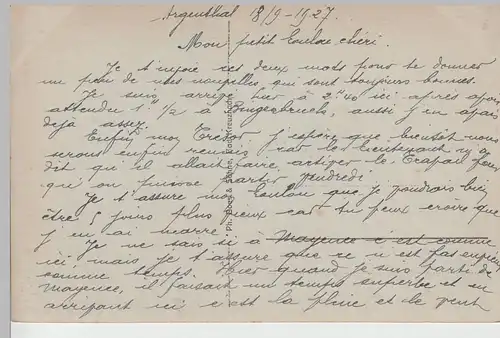 Argenthal 18/9-1927.
Mon petit Loulou chéri.
Je t'envoie ces deux mots pour te donner
un peu de mes nouvelles, qui sont toujours bonnes.
Je suis arrivé hier à 2h40 ici après avoir
attendu 1h 1/2 à aussi j'en avais
déjà assez.
Enfin mon Trésor j'espère que bientôt nous
serons enfin réunis, car le Lieutenant m'a
dit qu'il allait faire activer le travail pour
qu'on puisse partir vendredi.
Je t'assure mon Loulou que je voudrais bien
être 5 jours plus vieux car tu peux croire que
j'en ai marre.
Je ne sais si à Mayence c'est comme
ici mais je t'assure que ce n'est pas
comme temps. Hier quand je suis parti de
Mayence, il faisait un temps superbe et en
arrivant ici c'est la pluie et le vent
Ph. Boos & Söhne, Bad Kreuznach